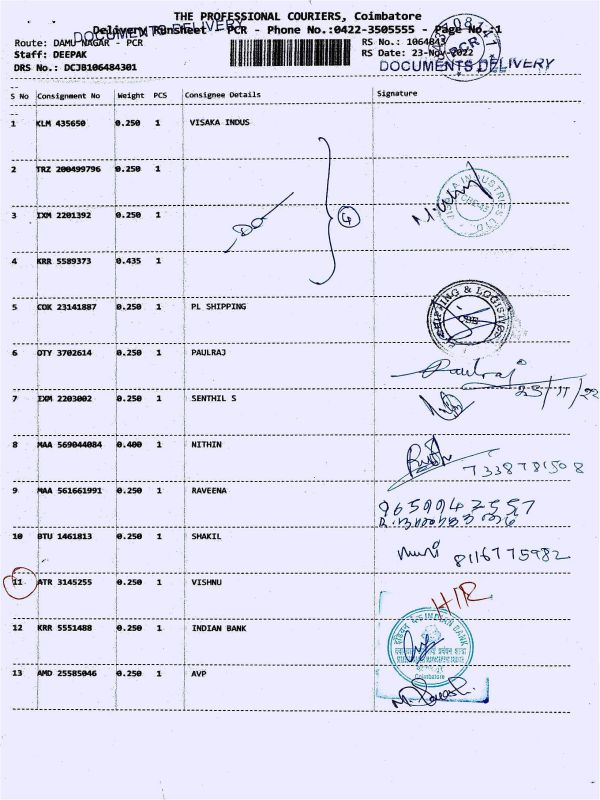 THE PROFESSIONAL COURIERS, Coimbatore
Delivery Runsheet - PCR - Phone No.:0422-3505555 - Page No.:1
DOCUMENTS DELIVERY
Route: DAMU NAGAR - PCR
RS No.: 1064843
Staff: DEEPAK
RS Date: 23-Nov-2022
DRS No.: DCJB106484301
DOCUMENTS DELIVERY
S No Consignment No Weight PCS Consignee Details Signature
1 KLM 435650 0.250 1 VISAKA INDUS
2 TRZ 200499796 0.250 1
3 IXM 2201392 0.250 1
4
4 KRR 5589373 0.435 1
5 COK 23141887 0.250 1 PL SHIPPING
SHIPPING & LOGISTICS
CBE
6 OTY 3702614 0.250 1 PAULRAJ
Paulraj
23/11/22
7 IXM 2203002 0.250 1 SENTHIL S
8 MAA 569044084 0.400 1 NITHIN
7338781508
9 MAA 561661991 0.250 1 RAVEENA
9659942557
10 BTU 1461813 0.250 1 SHAKIL
8116775982
11 ATR 3145255 0.250 1 VISHNU
12 KRR 5551488 0.250 1 INDIAN BANK
INDIAN BANK
Coimbatore
13 AMD 25585046 0.250 1 AVP